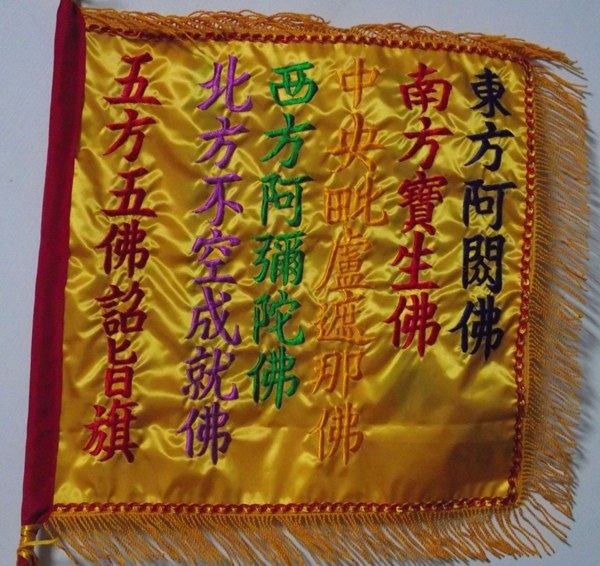 東方阿閦佛
南方寶生佛
中央毗盧遮那佛
西方阿彌陀佛
北方不空成就佛
五方五佛詔旨旗